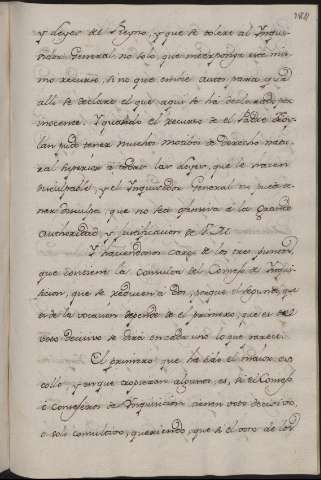 y leyes del Reyno, y que se tolere al Inqui-
sidor General no solo, que interponga este mis-
mo recurso, sino que embie autos, para que
alli se declare el que aqui se ha declarado por
inocente. Y quando el recurso de el Padre Froy-
lan pudo tener muchos motibos de derecho natu-
ral superior à todas las leyes, que le hacen
inculpable, y el Inquisidor General no puede te-
ner disculpa, que no sea ofensiva à la grande
authoridad, y justificacion de V. M.
Y haciendonos cargo de los tres puntos,
que contiene la Consulta del Consejo de Inqui-
sicion, que se reducen à dos, porque el segundo, que
es de la vocacion depende de el primero, que es el
voto decisivo se dirà en cada uno lo que parece.
El primero que ha sido el maior es-
collo, y en que tropiezan algunos, es, si el Consejo
ò Consejeros de Inquisicion tienen voto decisivo,
ò solo consultivo, queriendo, que si el voto de los